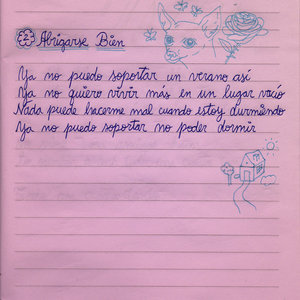 Abrigarse Bien
Ya no puedo soportar un verano así
Ya no quiero vivir más en un lugar vacío
Nada puede hacerme mal cuando estoy durmiendo
Ya no puedo soportar no poder dormir